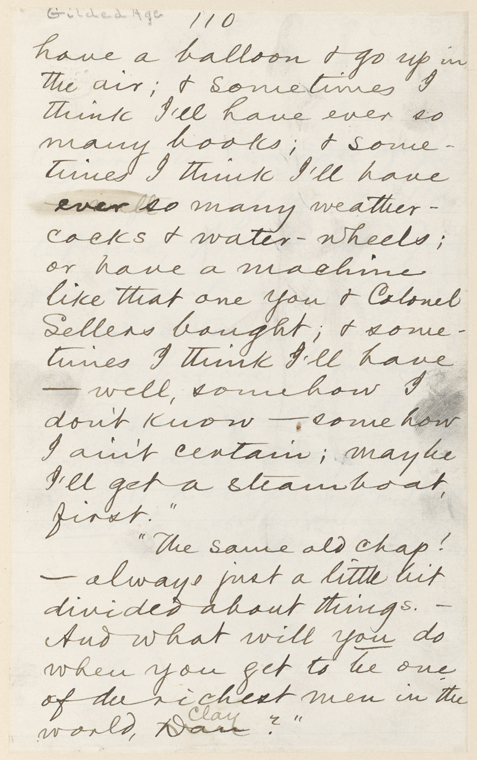 Gilded Age
110
have a balloon & go up in
the air; & sometimes I
think I'll have ever so
many books; & some-
times I think I'll have
ever so many weather-
cocks & water-wheels;
or have a machine
like that one you & Colonel
Sellers bought; & some-
times I think I'll have
— well, somehow I
don't know — somehow
I ain't certain; maybe
I'll get a steamboat,
first."
"The same old chap!
— always just a little bit
divided about things. —
And what will you do
when you get to be one
of the richest men in the
world, Dan Clay?"